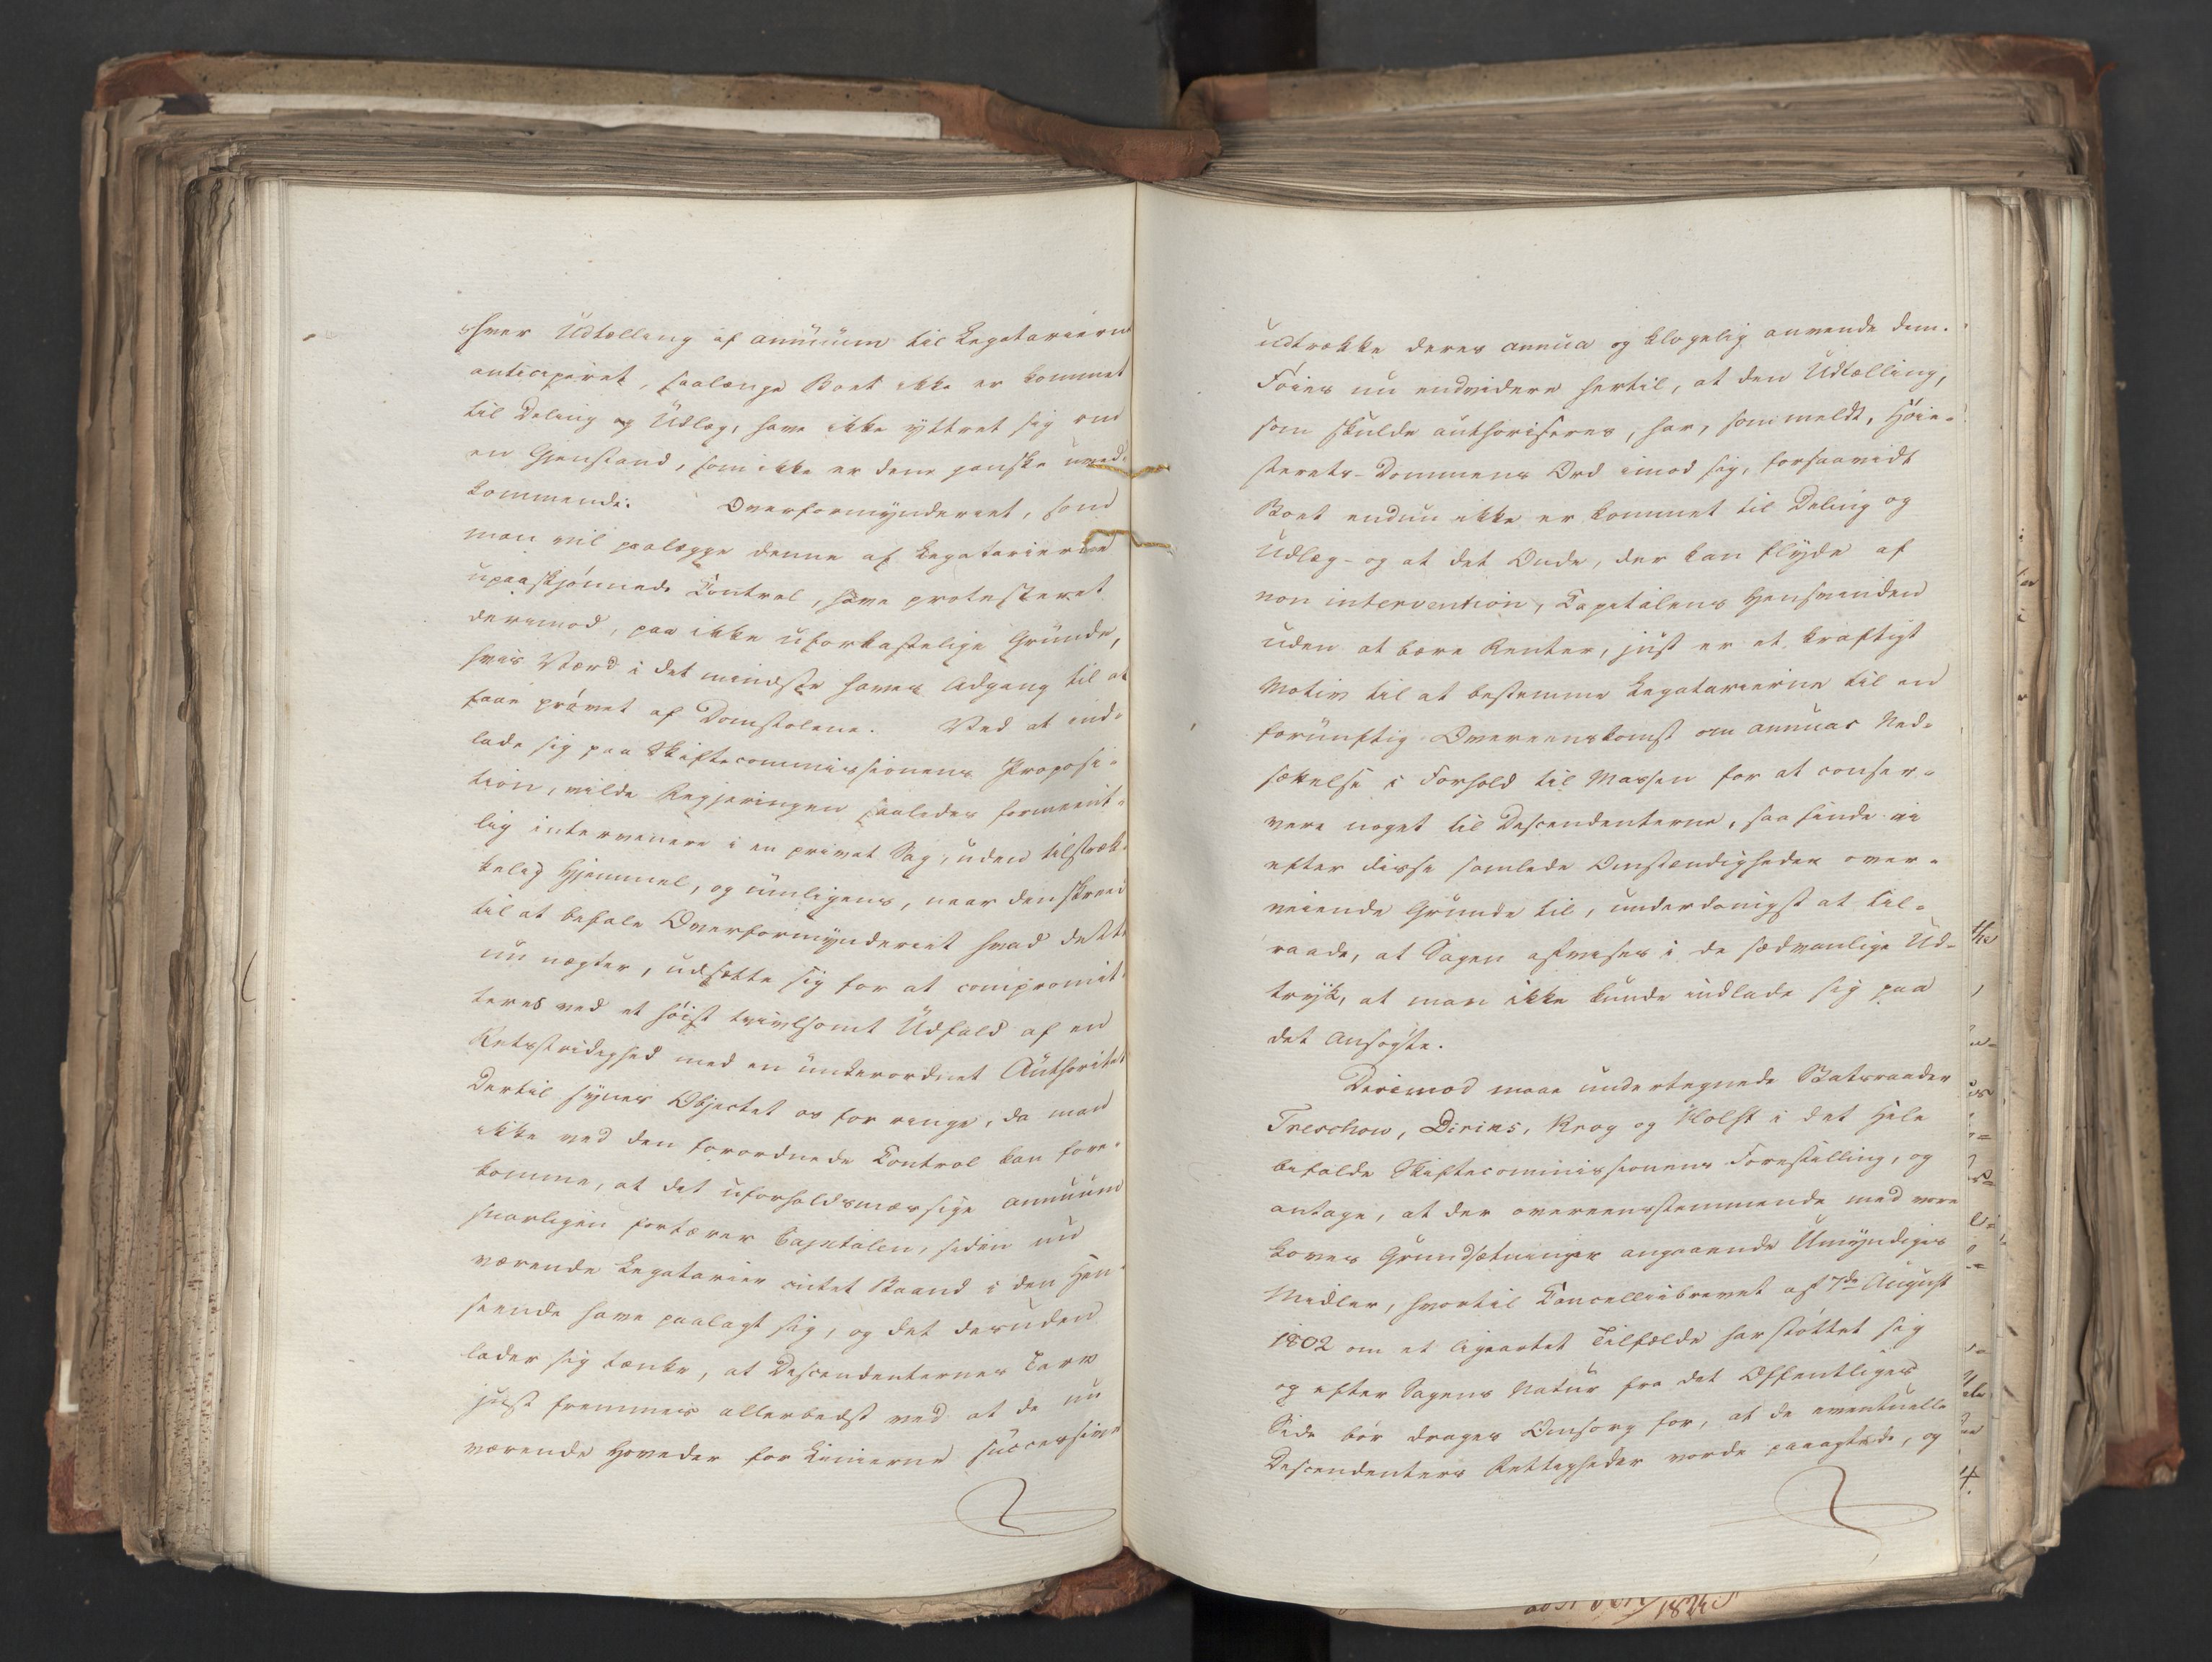 hver Udtælling af annuum til Legatarierne
anticiperet, saalænge Boet ikke er kommet
til Deling og Udlæg, have ikke yttret sig om
en Gjenstand, som ikke er dem ganske uved-
kommende. Overformynderiet, som
man vil paalægge denne af Legatarierne
upaaskjønnede Control, have protesteret
derimod, paa ikke uforkastelige Grunde,
hvis Værd i det mindste haves Adgang til at
faae prøvet af Domstolene. Ved at ind-
lade sig paa Skiftecommissionens Proposi-
tion, vilde Regjeringen saaledes formeent-
lig intervenere i en privat Sag, uden tilstræk-
kelig Hjemmel, og muligens, naar den skreed
til at befale Overformynderiet hvad dette
nu nægter, udsætte sig for at compromit-
teres ved et høist tvivlsomt Udfald af en
Retsstridighed med en underordnet Authoritet
Dertil synes Objectet os for ringe, da man
ikke ved den forordnede Control kan fore-
komme, at det uforholdsmæssige annuum
snarligen fortærer Capitalen, siden nu
værende Legatarier intet Baand i den Hen-
seende have paalagt sig, og det desuden
lader sig tænke, at Descendenternes Tarv
just fremmes allerbedst ved at de nu
værende Hoveder for Linierne successive
udtrække deres annua og klogelig anvende dem.
Føies nu endvidere hertil, at den Udtælling,
som skulde authoriseres, har, som meldt, Høie-
sterets-Dommens Ord imod sig, forsaavidt
Boet endnu ikke er kommet til Deling og
Udlæg - og at det Onde, der kan flyde af
non intervention, Capitalens Hensvinden
uden at bære Renter, just er et kraftigt
Motiv til at bestemme Legatarierne til en
fornuftig Overeenskomst om annuas Ned-
sættelse i Forhold til Massen for at conser-
vere noget til Descendenterne, saa finde vi
efter disse samlede Omstændigheder over-
veiende Grunde til, underdanigst at til-
raade, at Sagen afvises i de sædvanlige Ud-
tryk, at man ikke kunde indlade sig paa
det Ansøgte.
Derimod maae undertegnede Statsraader
Treschow, Diriks, Krog og Holst i det Hele
bifalde Skiftecommissionens Forestilling, og
antage, at der overeensstemmende med vore
Loves Grundsætninger angaaende Umyndiges
Midler, hvortil Cancelliebrevet af 7de August
1802 om et ligeartet Tilfælde har støttet sig
og efter Sagens Natur fra det Offentliges
Side bør drages Omsorg for, at de eventuelle
Descendenters Rettigheder vorde paaagtede, og